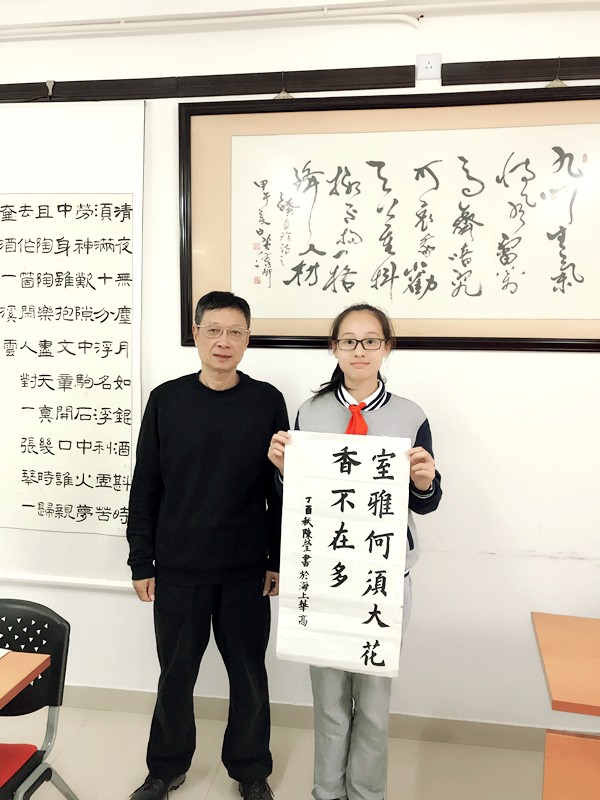 九州生氣
恃風雷萬
馬齊喑究
可哀我勸
天公重抖
擻不拘一格
降人材
清夜無塵月如銀酒斟時
須滿十分浮名浮利虛苦
勞神歎隙中駒石中火夢
中身雖抱文章開口誰親
且陶陶樂盡天真幾時歸
去作箇閒人對一張琴一
壺酒一溪雲
室雅何須大花
香不在多
丁酉秋陳瑩書於海上華高